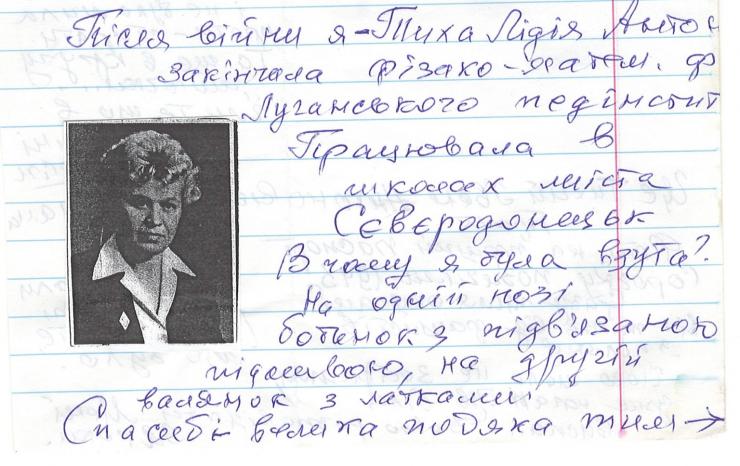 Після війни я - Тиха Лідія Антон
закінчала фізако-матем. ф
Луганського педінстит
Працювала в
школах міста
Сєвєродонецьк
В чому я була взута?
На одній нозі
ботинок з підв'язаною
підошвою, на другій
валянок з латками
Спасибі велика подяка тим →